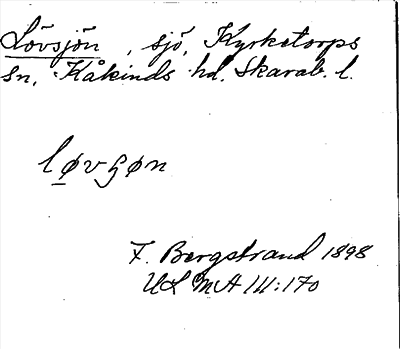 Lövsjön, sjö, Kyrketorps
sn, Kåkinds hd. Skarab. l.
løvʒøn
F. Bergstrand 1898
ULMA III:170